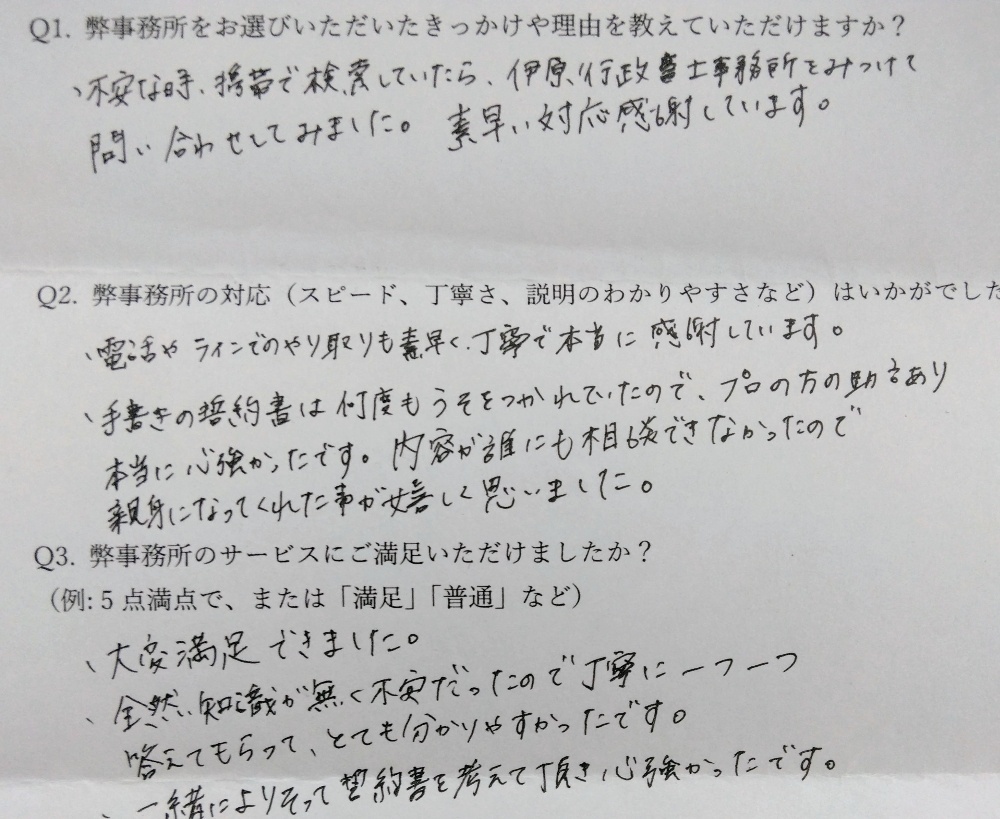 Q1. 弊事務所をお選びいただいたきっかけや理由を教えていただけますか？
、不安な時、携帯で検索していたら、伊原行政書士事務所をみつけて
問い合わせしてみました。 素早い対応感謝しています。
Q2. 弊事務所の対応（スピード、丁寧さ、説明のわかりやすさなど）はいかがでした
、電話やラインでのやり取りも素早く、丁寧で本当に感謝しています。
、手書きの誓約書は何度もうそをつかれていたので、プロの方の助言あり
本当に心強かったです。内容が誰にも相談できなかったので
親身になってくれた事が嬉しく思いました。
Q3. 弊事務所のサービスにご満足いただけましたか？
（例: 5 点満点で、または「満足」「普通」など）
、大変満足できました。
、全然、知識が無く不安だったので丁寧に一つ一つ
答えてもらって、とても分かりやすかったです。
、一緒によりそって誓約書を考えて頂き心強かったです。